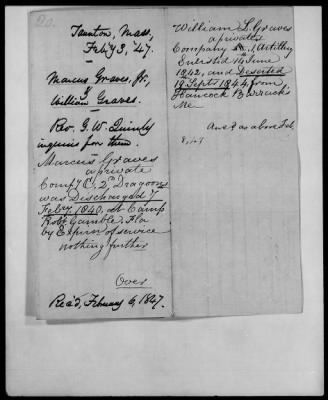 20.
Taunton, Mass,
Feb'y 3, '47.
Marcus Graves, Jr,
&
William Graves.
Rev. G. W. Quinby
inquires for them.
Marcus Graves
a private
Comp'y C, 2d Dragoons
was Discharged 7
Feb'ry 1840, at Camp
Rob't Gamble, Fla
by Expir'n of service
nothing further
Over
Rec'd, February 6, 1847.
William L. Graves
a private
Company 1, Artill'y
Enlisted 16 June
1842, and Deserted
19 Sept'r 1844, from
Hancock Barracks
Me
Ans'd as above Feb
8, 47